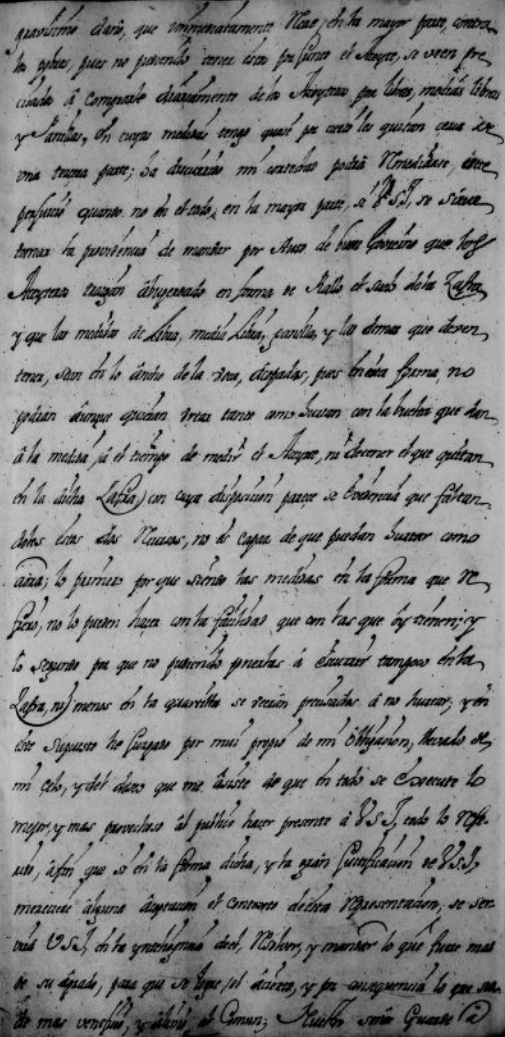 gravissimo daño, que immediatamente en la mayor parte, contra
los pobres, pues no pudiendo tener estos por junto el Azeyte, se veen pre
cisados â comprarle diariamente de los Azeyteros por libras, medias libras
y Panillas, en cuyas medidas tengo quasi por cierto les quitan cerca de
una tercera parte; ha discurrido mi cortedad podrâ Remediarse, este
perjuicio quando no en el todo, en la mayor parte, si V.S.I. se sirve
tomar la providencia de mandar por Auto de buen Govierno que los
Azeyteros traigan abugereado en forma de Rallo el suelo de la Zafra
y que las medidas de Libra, media Libra, panilla, y las demas que deven
tener, sean en lo ancho de la voca, pues en esta forma no
podran aunque quieran tanto como hurtan con la buelta que dan
â la medida, â el tiempo de medir el Azeyte, ni detener el que quitan
en la dicha Zafra, con cuya disposicion parece se evidencia que faltan
doles estos dos Recursos, no es capaz de que puedan hurtar como
aora; lo primero por que siendo las medidas en la forma que Re
fiero, no lo pueden hacer con la facilidad que con las que oy tienen; y
lo segundo por que no pudiendo ponerlas â escurrir tampoco en la
Zafra, ni menos en la se verân precisados â no hurtar; y en
este supuesto he juzgado por mui propio de mi obligacion, llevado de
mi Celo, y del deseo que me âsiste de que en todo se execute lo
mejor, y mas provechoso âl publico hacer presente â V.S.I. todo lo Refe
rido, âfin que si en la forma dicha, y la gran Justificacion de V.S.I.
mereciere alguna âceptacion el contexto de esta Representacion, se ser
virâ V.S.I. en la ynteligencia de el, Resolver, y mandar lo que fuere mas
de su âgrado, para que se logre, el âcierto, y por consequencia lo que sea
de mas veneficio, y âlivio, al Comun; Nuestro señor Guarde a